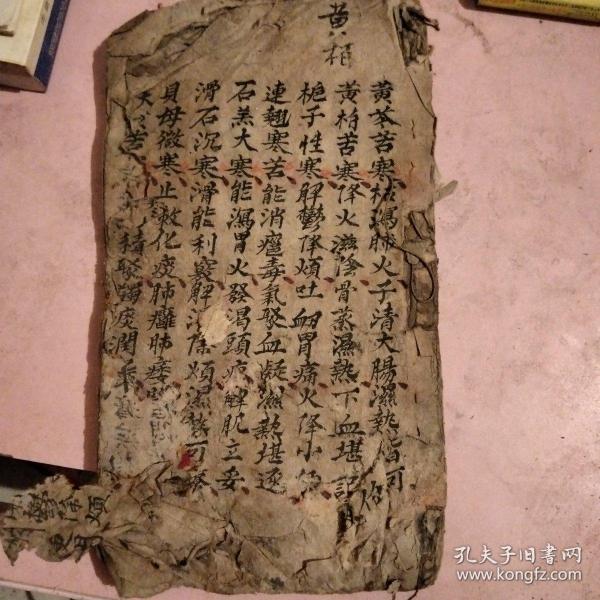 黄柏
黄芩苦寒枯瀉肺火子清大腸濕熱皆可
黄柏苦寒降火滋陰骨蒸濕熱下血堪記
梔子性寒解鬱降煩吐衂胃痛火降小便
連翹寒苦能消癰毒氣聚血凝濕熱堪逐
石羔大寒能瀉胃火發渴頭疼解肌立妥
滑石沉寒滑能利竅解渴除煩濕熱可療
貝母微寒止敕化痰肺癰肺痿
天 苦寒 精 燭痰潤
鬱降煩
孔夫子旧书网
www.kongfz.com